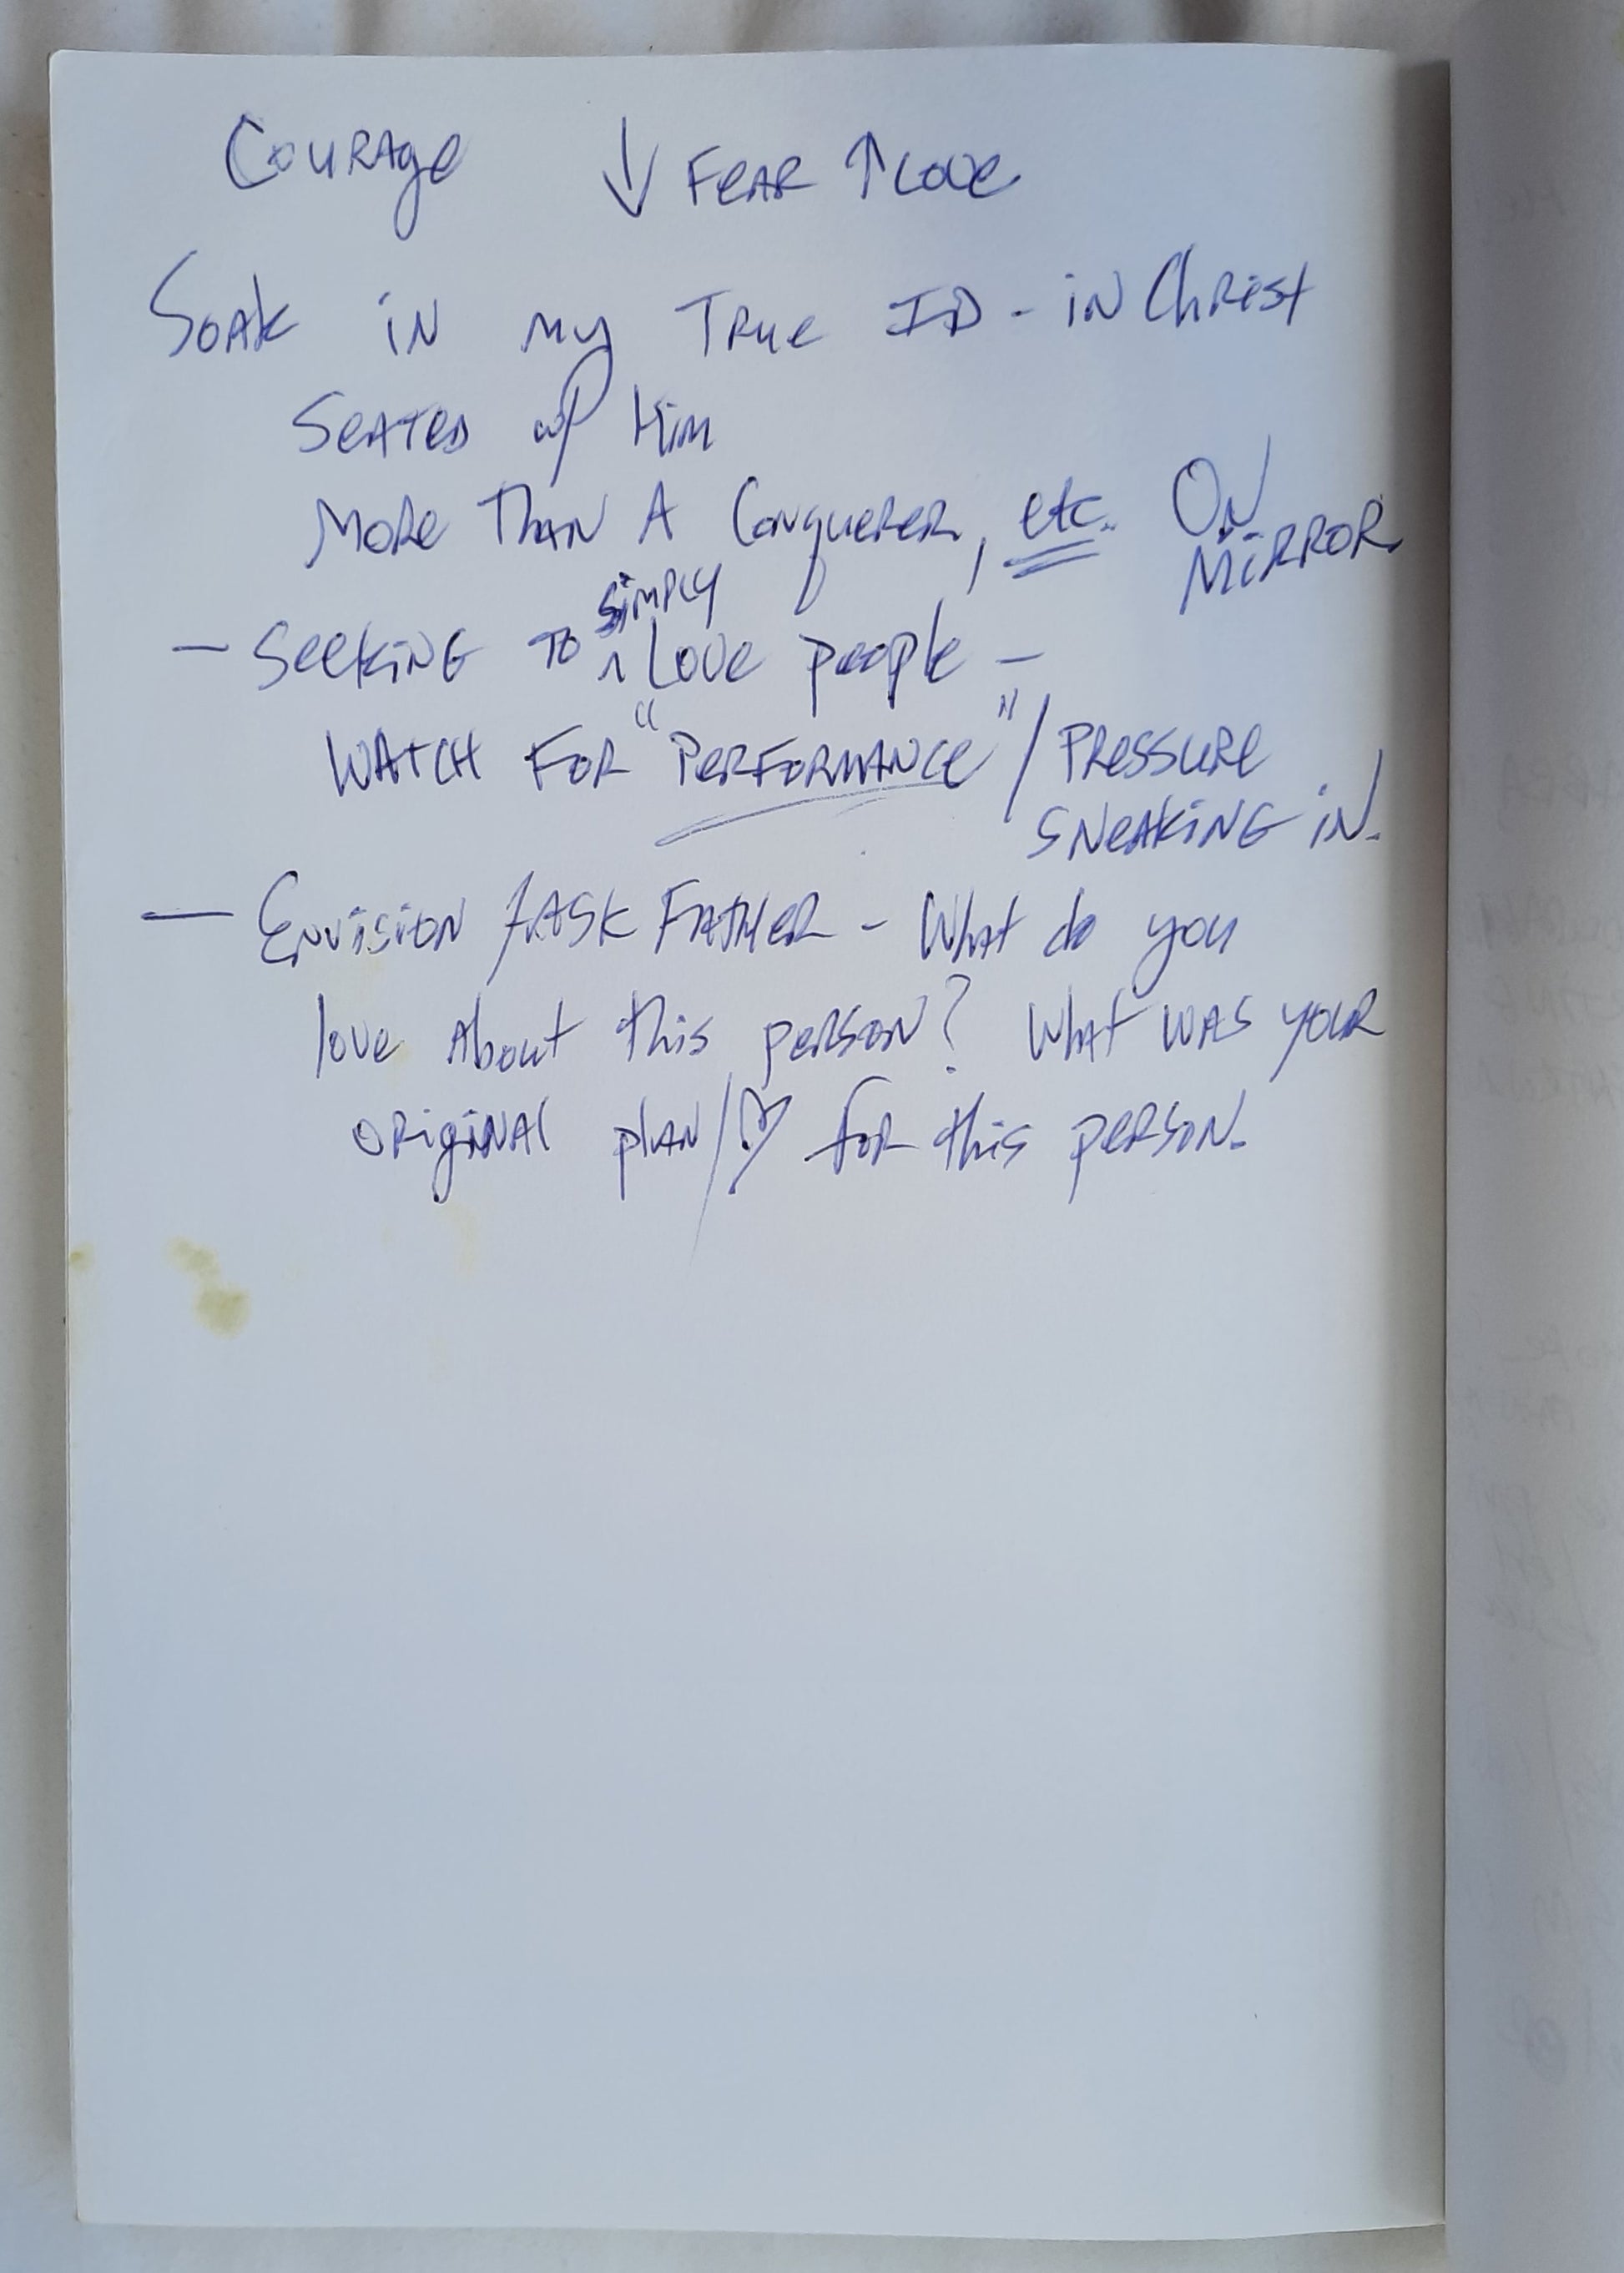 Courage ↓ Fear ↑ Love
Soak in my True ID - in Christ
Seated w/ Him
More Than A Conquerer, etc. On
Mirror
simply
- Seeking to ^ Love people -
Watch for "Performance" / Pressure
Sneaking in.
- Envision / Ask Father - What do you
love about this person? What was your
original plan/♡ for this person.